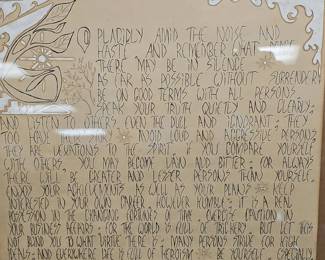 GO PLACIDLY AMID THE NOISE AND
HASTE AND REMEMBER WHAT PEACE
THERE MAY BE IN SILENCE
AS FAR AS POSSIBLE WITHOUT SURRENDER
BE ON GOOD TERMS WITH ALL PERSONS
SPEAK YOUR TRUTH QUIETLY AND CLEARLY;
AND LISTEN TO OTHERS, EVEN THE DULL AND IGNORANT; THEY
TOO HAVE AVOID LOUD AND AGGRESSIVE PERSONS,
THEY ARE VEXATIONS TO THE SPIRIT. IF YOU COMPARE YOURSELF
WITH OTHERS, YOU MAY BECOME VAIN AND BITTER; FOR ALWAYS
THERE WILL BE GREATER AND LESSER PERSONS THAN YOURSELF.
ENJOY YOUR ACHIEVEMENTS AS WELL AS YOUR PLANS KEEP
INTERESTED IN YOUR OWN CAREER, HOWEVER HUMBLE; IT IS A REAL
POSSESSION IN THE CHANGING FORTUNES OF TIME. EXERCISE CAUTION IN
YOUR BUSINESS AFFAIRS; FOR THE WORLD IS FULL OF TRICKERY. BUT LET THIS
NOT BLIND YOU TO WHAT VIRTUE THERE IS; MANY PERSONS STRIVE FOR HIGH
IDEALS; AND EVERYWHERE LIFE IS FULL OF HEROISM. BE YOURSELF. ESPECIALLY